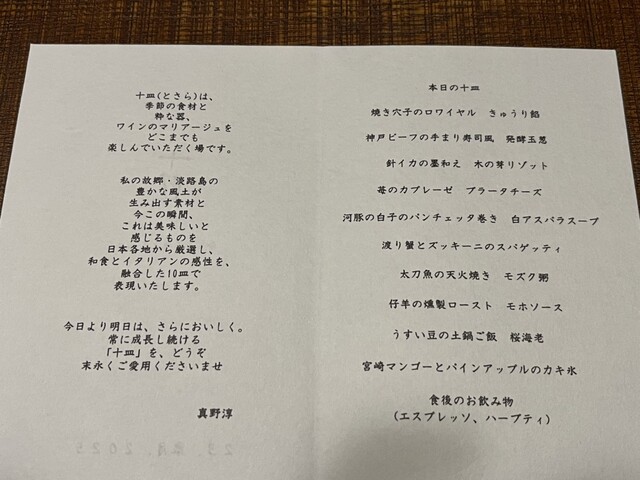 十皿(とさら)は、
季節の食材と
粋な器、
ワインのマリアージュを
どこまでも
楽しんでいただく場です。
私の故郷・淡路島の
豊かな風土が
生み出す素材と
今この瞬間、
これは美味しいと
感じるものを
日本各地から厳選し、
和食とイタリアンの感性を、
融合した10皿で
表現いたします。
今日より明日は、さらにおいしく。
常に成長し続ける
「十皿」を、どうぞ
末永くご愛用くださいませ
真野淳
本日の十皿
焼き穴子のロワイヤル きゅうり餡
神戸ビーフの手まり寿司風 発酵玉葱
針イカの墨和え 木の芽リゾット
苺のカプレーゼ ブラータチーズ
河豚の白子のパンチェッタ巻き 白アスパラスープ
渡り蟹とズッキーニのスパゲッティ
太刀魚の天火焼き モズク粥
仔羊の燻製ロースト モホソース
うすい豆の土鍋ご飯 桜海老
宮崎マンゴーとパインアップルのカキ氷
食後のお飲み物
(エスプレッソ、ハーブティ)